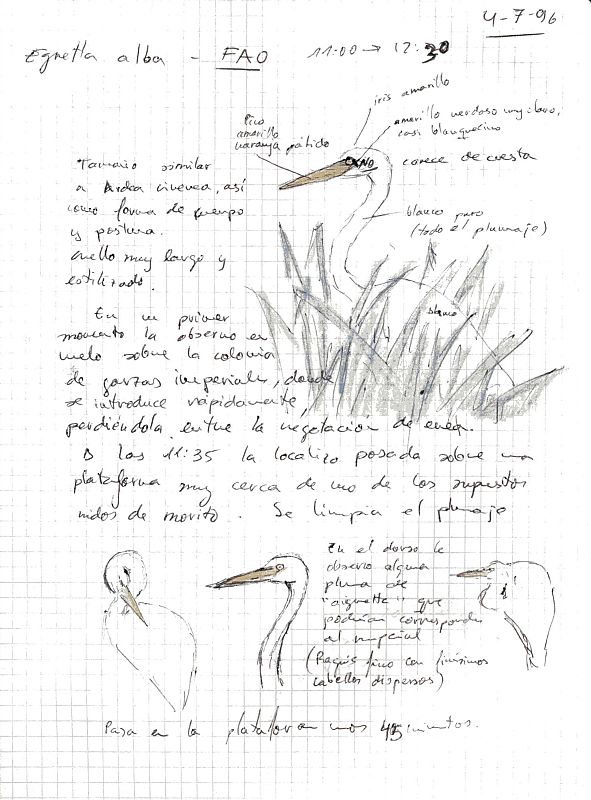 4-7-96
Egretta alba - FAO 11:00 → 12:30
iris amarillo
Pico
amarillo
naranja pálido
amarillo verdoso muy claro,
casi blanquecino
carece de cresta
Tamaño similar
a Ardea cinerea, así
como forma de cuerpo
y postura.
Cuello muy largo y
estilizado.
blanco puro
(todo el plumaje)
blanco
En un primer
momento la observo en
vuelo sobre la colonia
de garzas imperiales, donde
se introduce rápidamente,
perdiéndola entre la vegetación de enea.
A las 11:35 la localizo posada sobre una
plataforma muy cerca de uno de los supuestos
nidos de morito. Se limpia el plumaje
En el dorso le
observo alguna
pluma de
"aigrette" que
podrían corresponder
al nupcial
(Raquis fino con finísimos
cabellos dispersos)
Pasa en la plataforma unos 45 minutos.